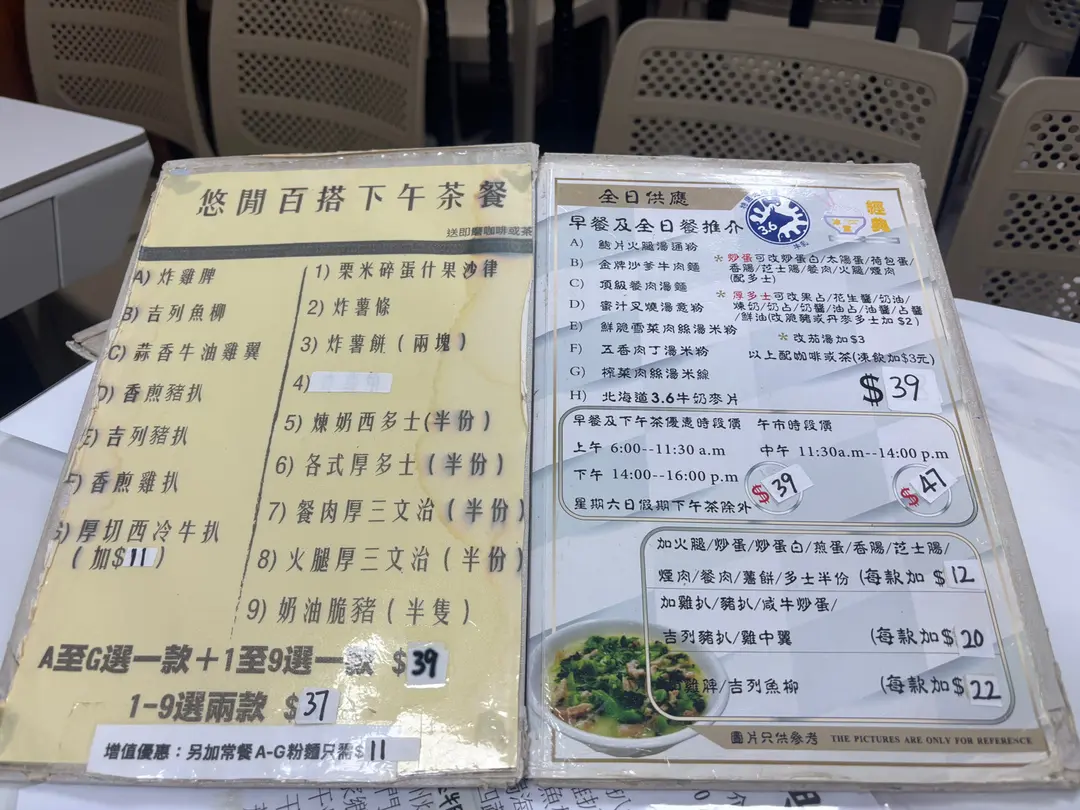 悠閒百搭下午茶餐
送即磨咖啡或茶
A) 炸雞脾
B) 吉列魚柳
C) 蒜香牛油雞翼
D) 香煎豬扒
E) 吉列豬扒
F) 香煎雞扒
G) 厚切西冷牛扒
(加$11)
1) 粟米碎蛋什果沙律
2) 炸薯條
3) 炸薯餅(兩塊)
4)
5) 煉奶西多士(半份)
6) 各式厚多士(半份)
7) 餐肉厚三文治(半份)
8) 火腿厚三文治(半份)
9) 奶油脆豬(半隻)
A至G選一款+1至9選一款 $39
1-9選兩款 $37
增值優惠:另加常餐A-G粉麵只需$11
全日供應
早餐及全日餐推介
3.6
牛乳
經典
A) 鮑片火腿湯通粉
B) 金牌沙爹牛肉麵
C) 頂級餐肉湯麵
D) 蜜汁叉燒湯意粉
E) 鮮脆雪菜肉絲湯米粉
F) 五香肉丁湯米粉
G) 榨菜肉絲湯米線
H) 北海道3.6牛奶麥片
*炒蛋可改炒蛋白/太陽蛋/荷包蛋/
香腸/芝士腸/餐肉/火腿/煙肉
(配多士)
*厚多士可改果占/花生醬/奶油/
煉奶/奶占/奶醬/油占/油醬/占醬
/鮮油(改脆豬或丹麥多士加$2)
*改茄湯加$3
以上配咖啡或茶(凍飲加$3元)
$39
早餐及下午茶優惠時段價
上午 6:00--11:30 a.m
下午 14:00--16:00 p.m
$39
星期六日假期下午茶除外
午市時段價
中午 11:30a.m--14:00 p.m
$47
加火腿/炒蛋/炒蛋白/煎蛋/香腸/芝士腸/
煙肉/餐肉/薯餅/多士半份 (每款加 $12
加雞扒/豬扒/咸牛炒蛋/
吉列豬扒/雞中翼 (每款加$20
雞脾/吉列魚柳 (每款加$22
圖片只供參考 THE PICTURES ARE ONLY FOR REFERENCE